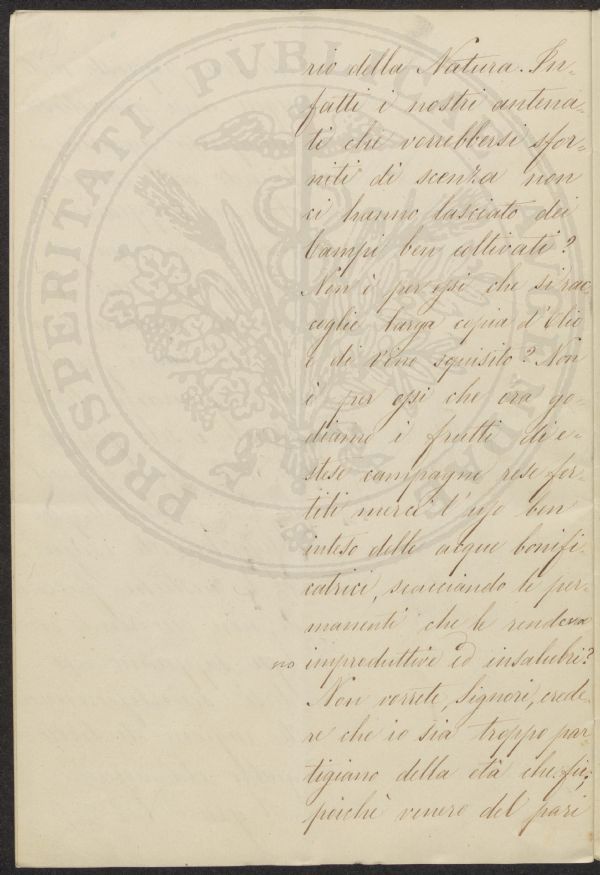 rio della Natura. In-
fatti i nostri antena-
ti che vorrebbersi sfor-
niti di scenza non
ci hanno lasciato dei
Campi ben coltivati?
Non è per essi che si rac
coglie larga copia d'Olio
e di vino squisito? Non
è per essi che ora go-
diamo i frutti di e-
stese campagne rese fer-
tili mercè l'uso ben
inteso delle acque bonifi-
catrici, scacciando le per-
manenti che le rendeva
no improduttive ed insalubri?
Non vorrete, Signori, crede-
re che io sia troppo par
tigiano della età che fu;
poichè venero del pari
PROSPERITATI PVBLICAE